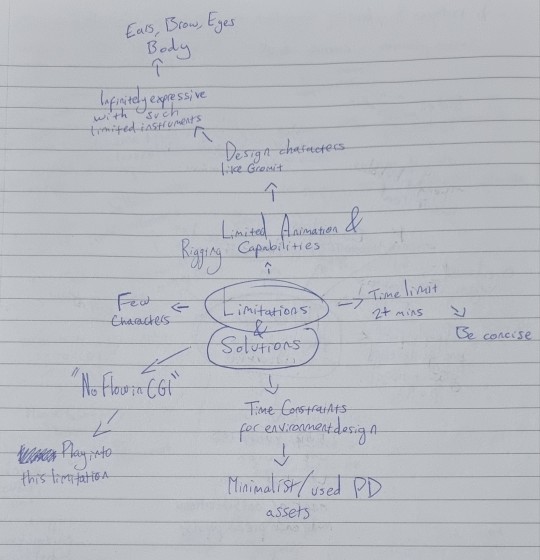 Ears, Brow, Eyes
Body
Infinitely expressive
with such
limited instruments
Design characters
like Gromit
Limited Animation &
Rigging Capabilities
Few
Characters
Limitations
&
Solutions
Time limit
2+ mins
Be concise
"No Flow in CGI"
Play into
this limitation
Time Constraints
for environment design
Minimalist/used PD
assets